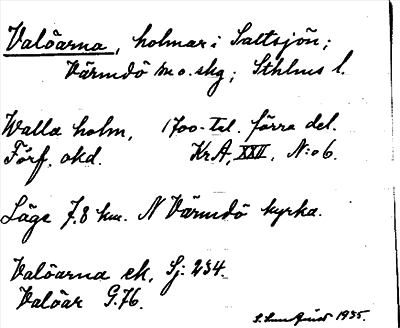 Valöarna, holmar i Saltsjön;
Värmdö sn o. skg; Sthlms l.
Walla holm, 1700-tal. förra del.
Förf. okd. KrA, XXII, N:o 6.
Läge 7.8 km. N Värmdö kyrka.
Valöarna ek. Sj: 234.
Valöar G.76.
1935.